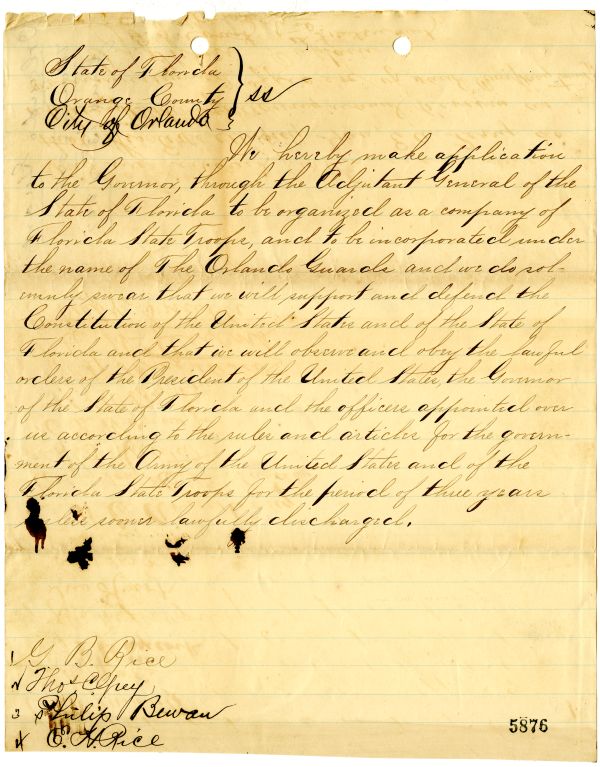 State of Florida
Orange County } ss
City of Orlando
We hereby make application
to the Governor, through the Adjutant General of the
State of Florida to be organized as a company of
Florida State Troops, and to be incorporated under
the name of The Orlando Guards and we do sol-
emnly swear that we will support and defend the
Constitution of the United States and of the State of
Florida and that we will observe and obey the lawful
orders of the President of the United States, the Governor
of the State of Florida and the officers appointed over
us according to the rules and articles for the govern-
ment of the Army of the United States and of the
Florida State Troops for the period of three years
sooner lawfully discharged.
1 G. B. Rice
2 Thos
3 Philip Bewan
4 Rice
5876